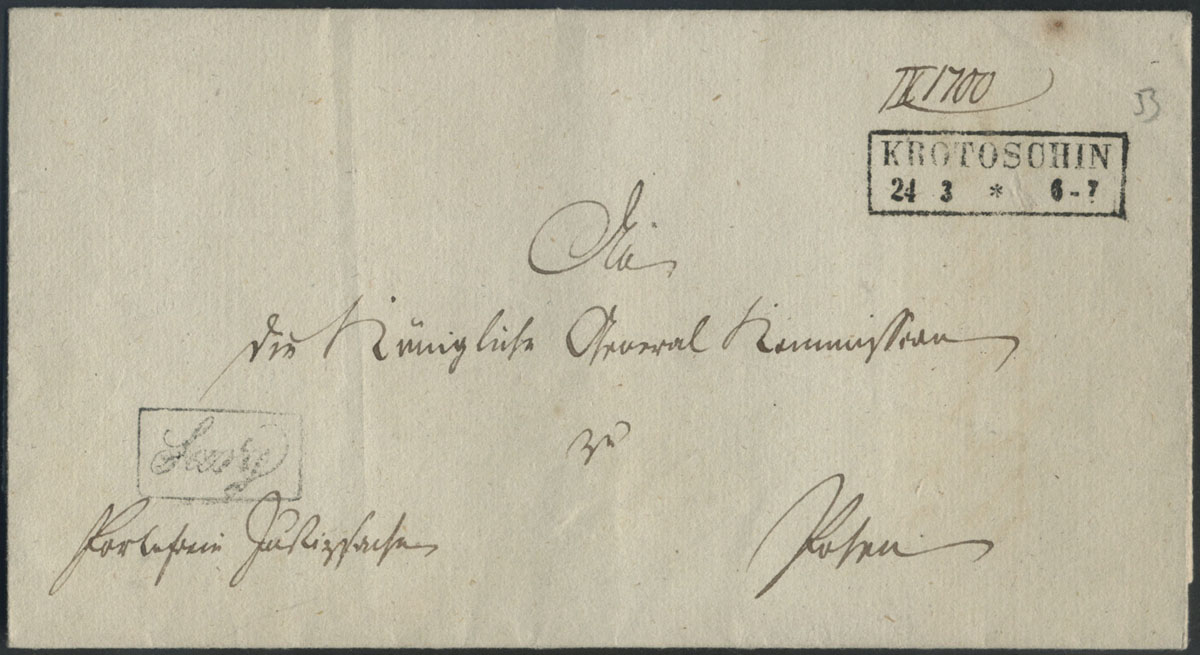 IX 1700
KROTOSCHIN
24 3 * 6-7
An
die Königliche General Kommission
zu
Portofreie Justizsache
Posen